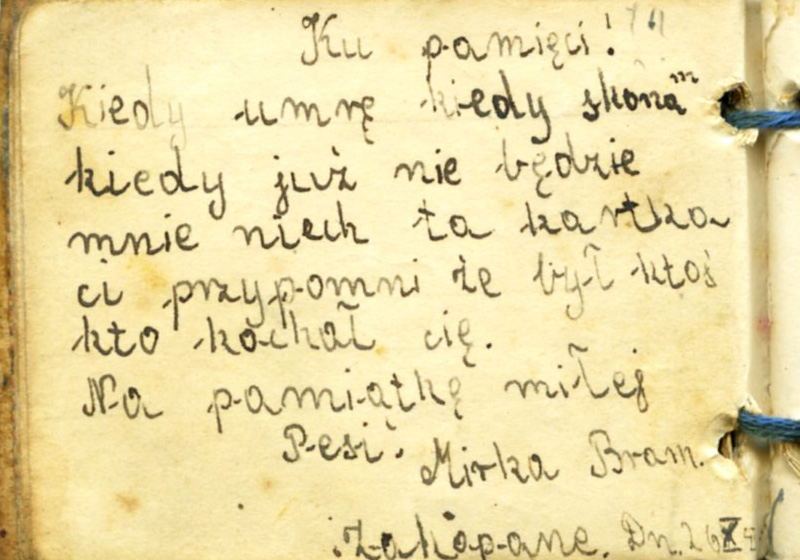 Ku pamięci!
Kiedy umrę kiedy skonam
kiedy już nie będzie
mnie niech ta kartka
ci przypomni że był ktoś
kto kochał cię.
Na pamiątkę miłej
Pesi.
Mirka Bram.
Zakopane. Dn. 26 X